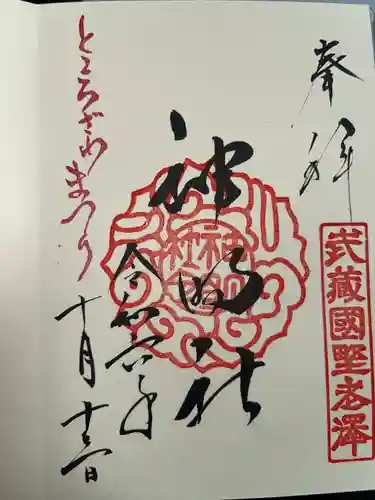 奉拝
武蔵國野老澤
神明社
令和六年
十月十三日
ところざわまつり